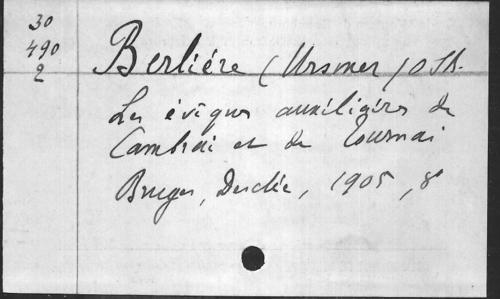 30
490
2
Berliére (Ursmer) OSB.
Les évêques auxiliaires de
Cambrai et de Tournai
Bruges, Desclée, 1905, 8°